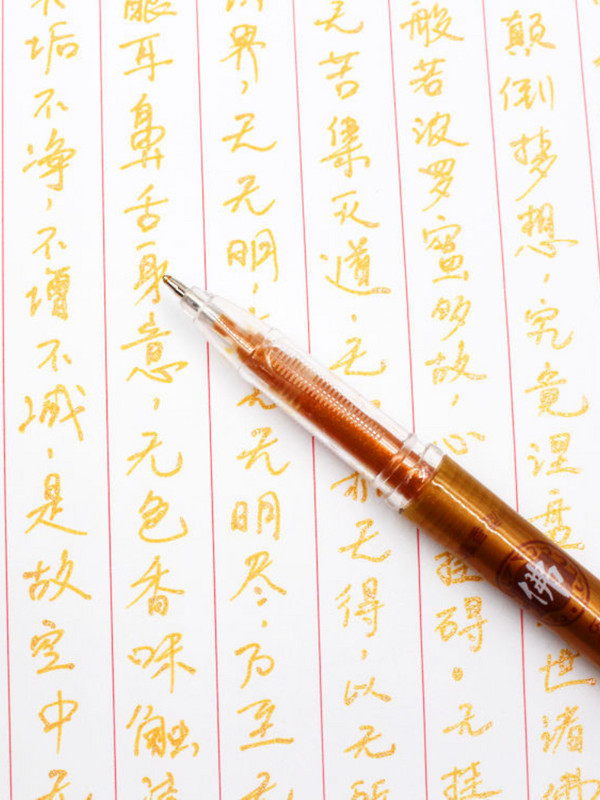 垢不净,不增不减,是故空中无
眼耳鼻舌身意,无色香味触法
界,无无明,无无明尽,乃至无
无苦集灭道,无亦无得,以无所
般若波罗蜜多故,心挂碍。无挂
颠倒梦想,究竟涅盘世诸佛
佛